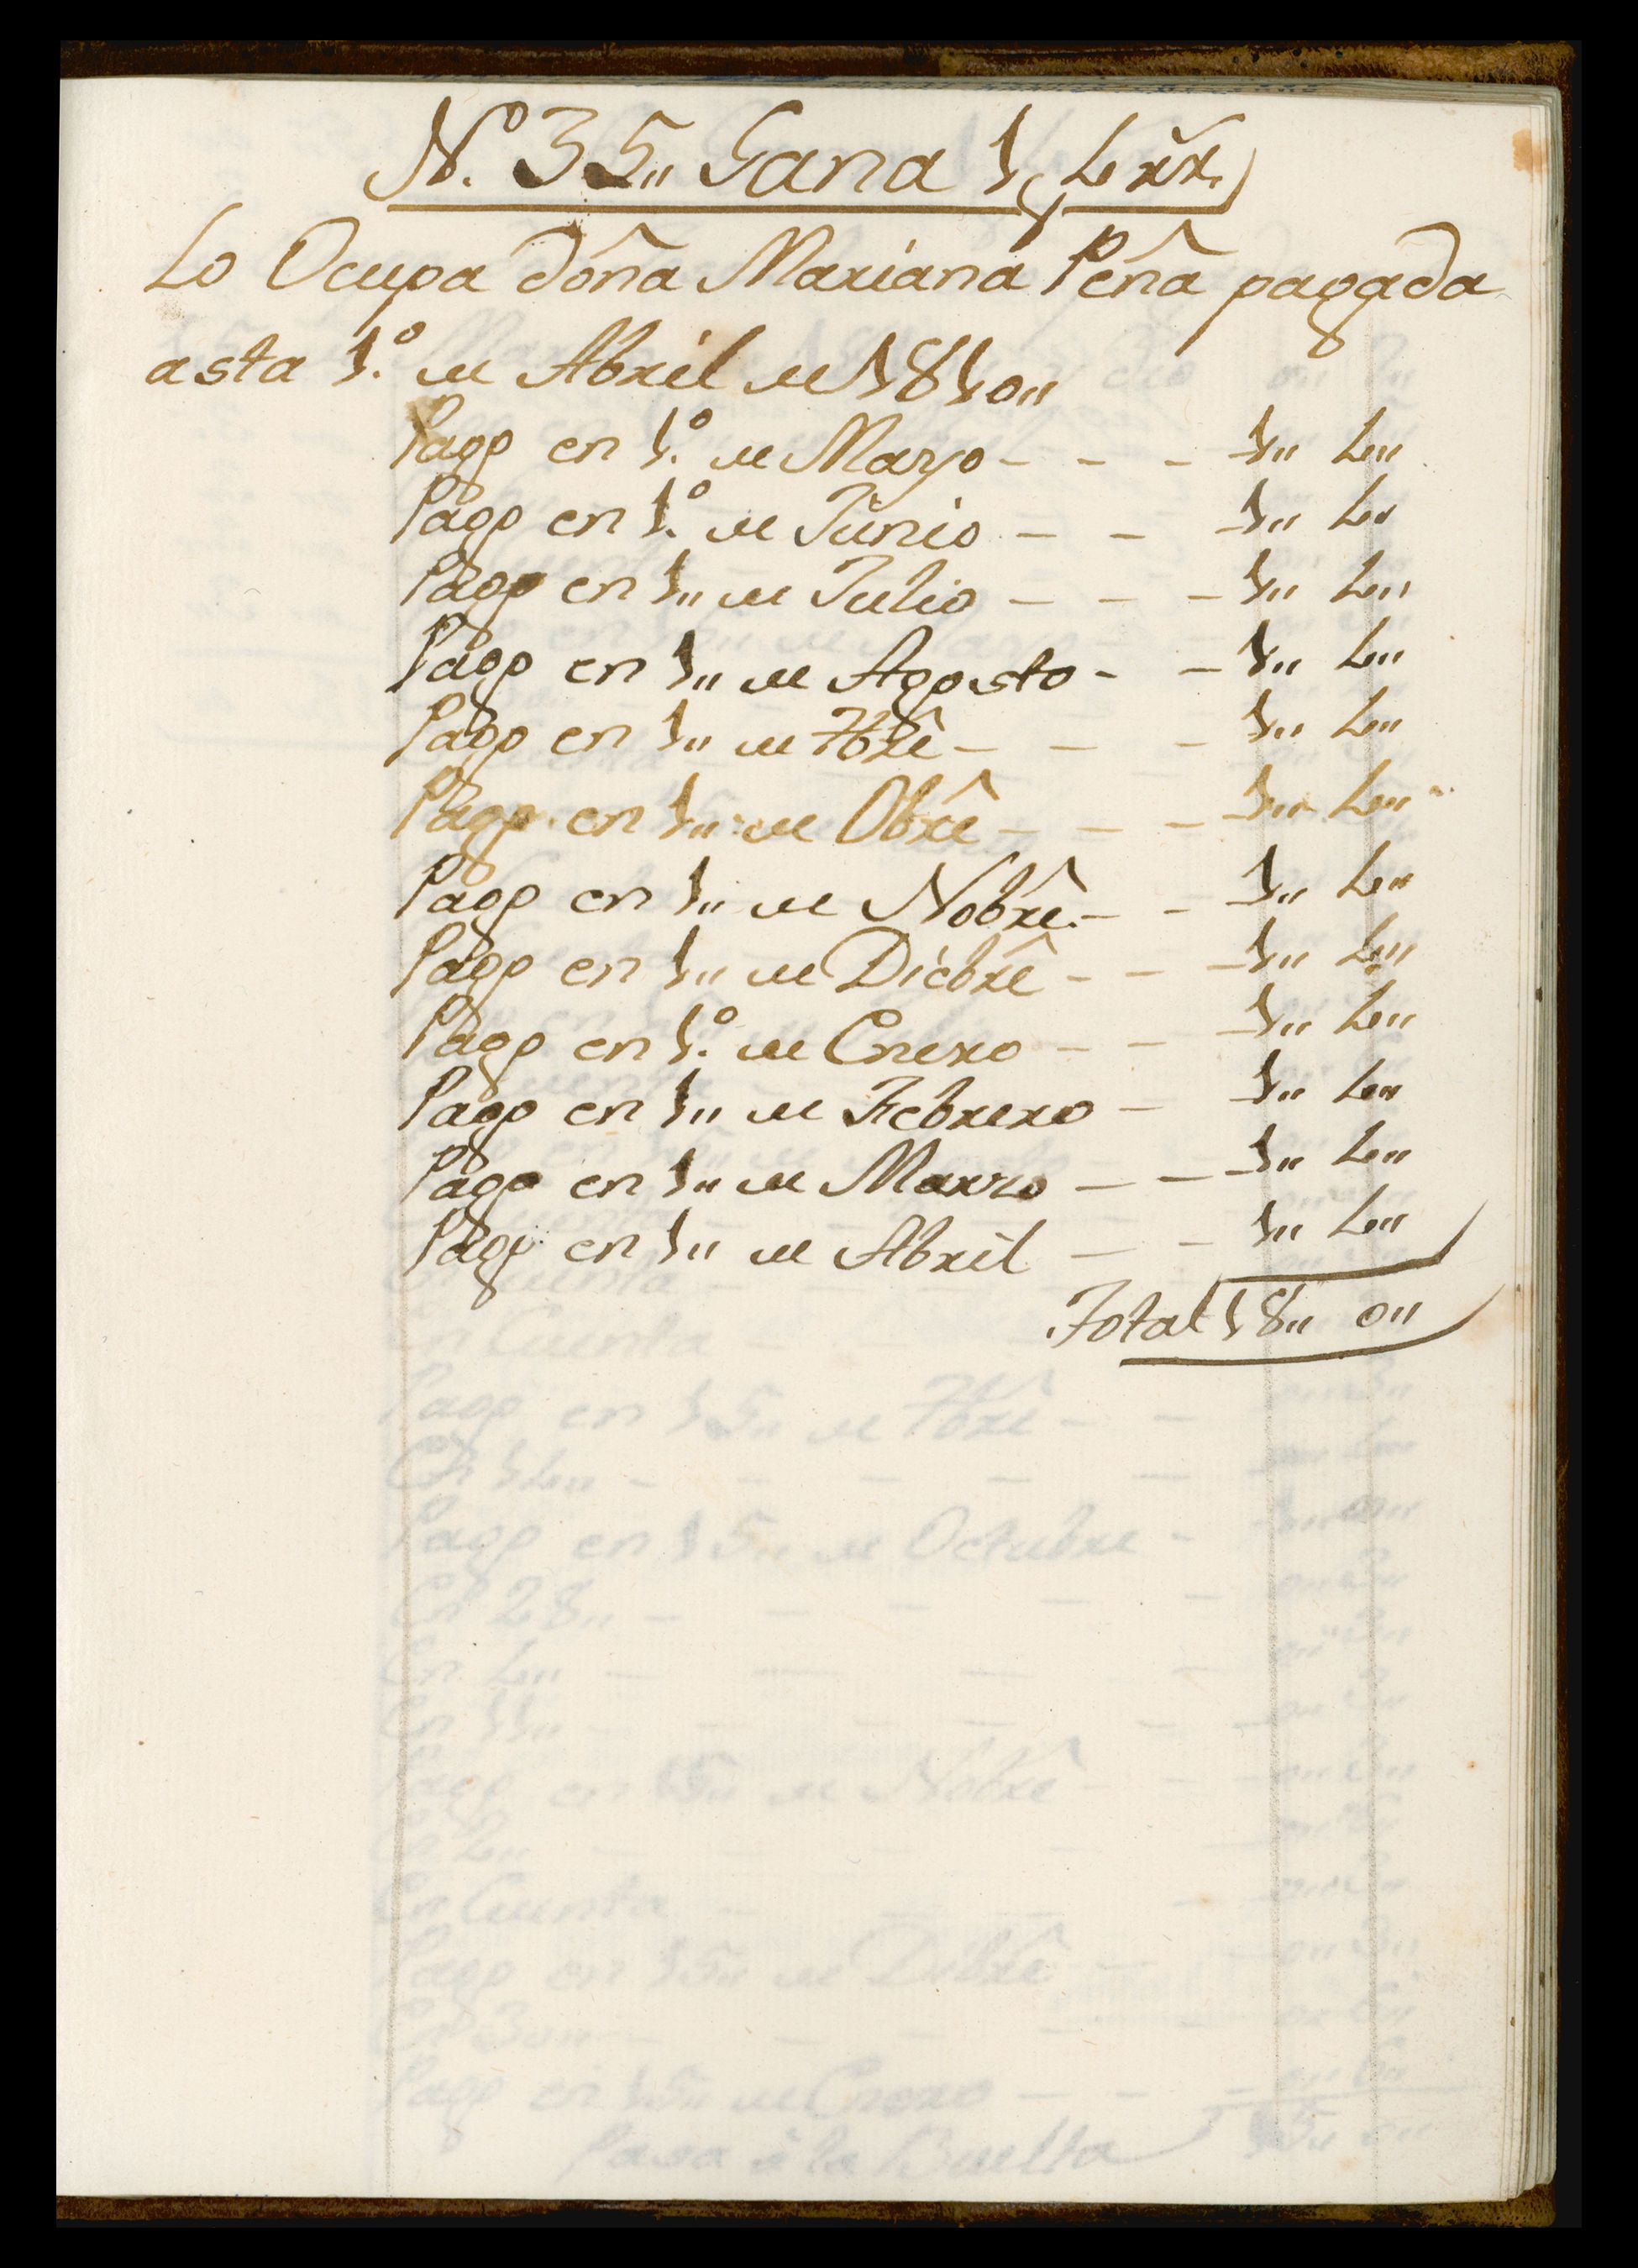 N.º 35,, Gana 1 „ 4 rr.
Lo Ocupa doña Mariana Peña pagada
asta 1.º de Abril de 1810,,
Pago en 1.º de Mayo - - - 1,, 4,,
Pago en 1.º de Junio - - 1,, 4,,
Pago en 1,, de Julio - - - 1,, 4,,
Pago en 1,, de Agosto - - 1,, 4,,
Pago en 1,, de 7bre - - - 1,, 4,,
Pago en 1,, de Obre - - - 1,, 4,,
Pago en 1,, de Nobre. - - 1,, 4,,
Pago en 1,, de Dicbre - - - 1,, 4,,
Pago en 1.º de Enero - - 1,, 4,,
Pago en 1,, de Febrero - 1,, 4,,
Pago en 1,, de Marzo - - 1,, 4,,
Pago en 1,, de Abril - - 1,, 4,,
Total 18,, 0,,